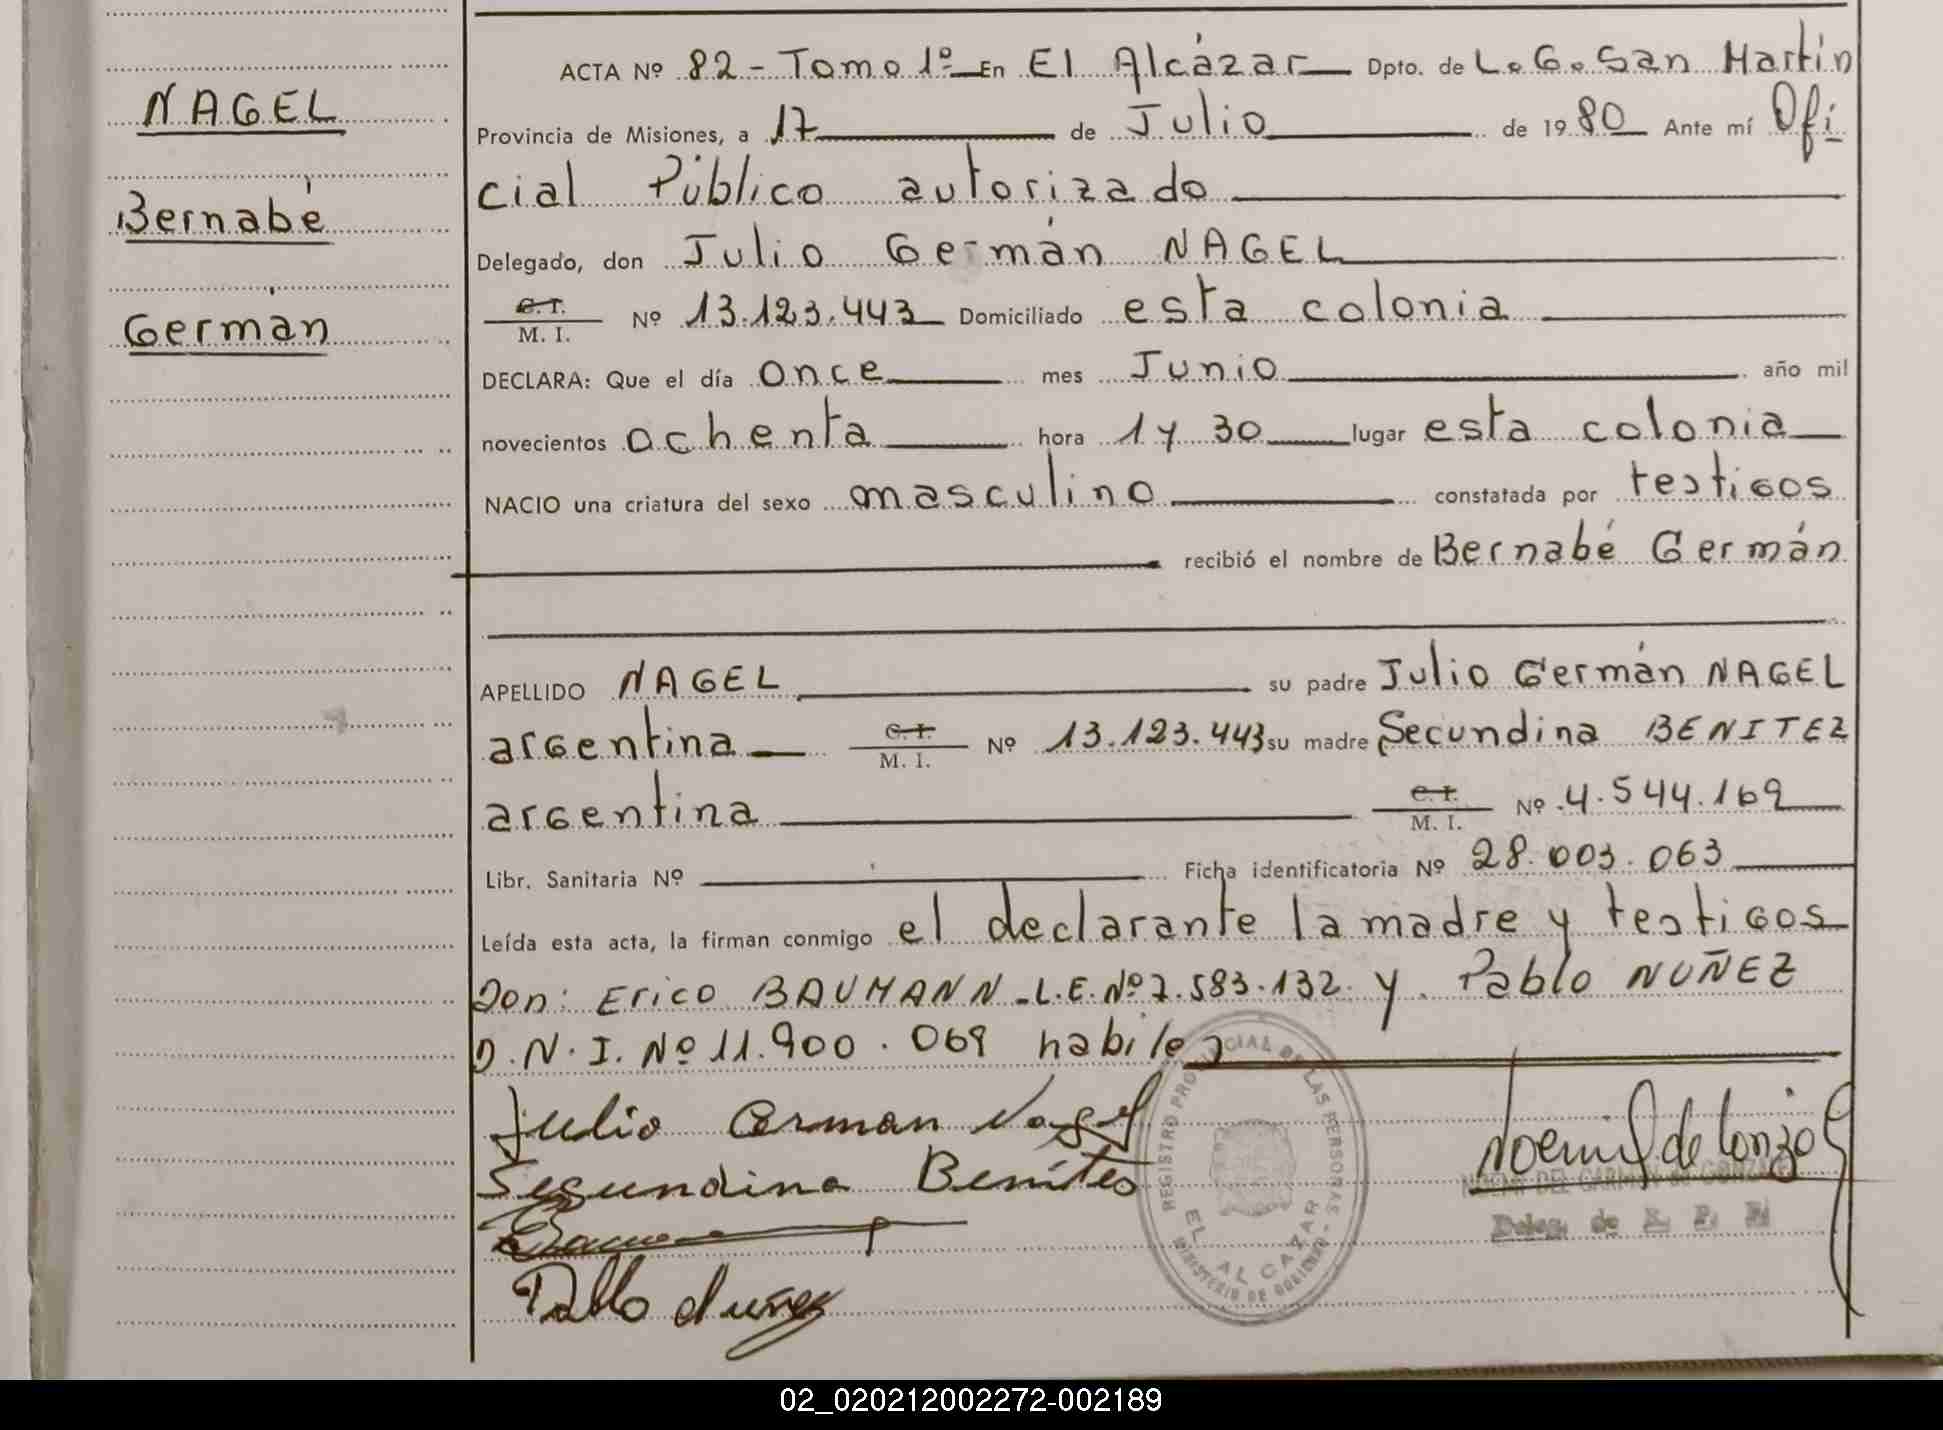 NAGEL
Bernabé
Germán
ACTA Nº 82 - Tomo 1º En El Alcázar Dpto. de L. G. San Martín
Provincia de Misiones, a 17 de Julio de 1980 Ante mí Ofi
cial Público autorizado
Delegado, don Julio Germán NAGEL
C. I.
M. I. Nº 13.123.443 Domiciliado esta colonia
DECLARA: Que el día once mes Junio año mil
novecientos ochenta hora 1 y 30 lugar esta colonia
NACIO una criatura del sexo masculino constatada por testigos
recibió el nombre de Bernabé Germán
APELLIDO NAGEL su padre Julio Germán NAGEL
argentina C. I. M. I. Nº 13.123.443 su madre Secundina BENITEZ
argentina C. I. M. I. Nº 4.544.169
Libr. Sanitaria Nº Ficha identificatoria Nº 28.003.063
Leída esta acta, la firman conmigo el declarante la madre y testigos
Don: Erico BAUMANN - L.E. Nº 7.583.132 y Pablo NUÑEZ
D.N.I. Nº 11.900.069 habiles
Julio German Nagel
Segundina Benites
Pablo Nuñez
REGISTRO PROVINCIAL DE LAS PERSONAS
EL ALCAZAR
MINISTERIO DE GOBIERNO
NOEMI DEL CARMEN de GONZALEZ
Deleg. de R. P. P.
02_020212002272-002189